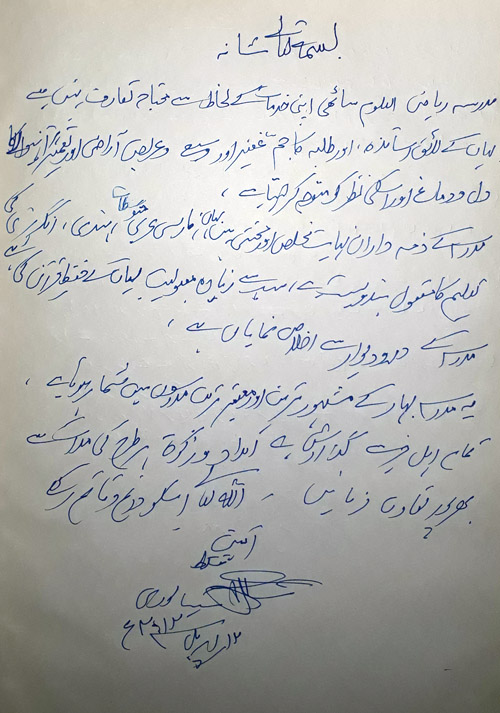 بسمہ تعالیٰ شانہ
مدرسہ ریاض العلوم ساٹھی اپنی خدمات کے لحاظ سے محتاج تعارف نہیں ہے
یہاں کے لائق اساتذہ، اور طلبہ کا جم غفیر اور وسیع و عریض آراضی اور تعمیر
دل و دماغ اور اسکی نظر کو متوجہ کر لیتا ہے،
مدرسہ کے ذمہ داران نہایت مخلص اور محنتی ہیں، یہاں فارسی عربی، ہندی، انگریزی کی
تعلیم کا معقول بندوبست ہے، سب سے زیادہ مقبولیت یہاں کے حفظ قرآن کی ہے
مدرسہ کے در و دیوار سے اخلاص نمایاں ہے،
یہ مدرسہ بہار کے مشہور ترین اور معتبر ترین مدرسوں میں شمار ہوتا ہے،
تمام اہل خیر سے گذارش ہے امداد و زکوٰۃ ہر طرح کی مدات سے
بھرپور تعاون فرمائیں - اللہ تعالیٰ اسکو دائم و قائم رکھے
آمین
فقط
۱۲ اپریل ۲۰۱۲ء